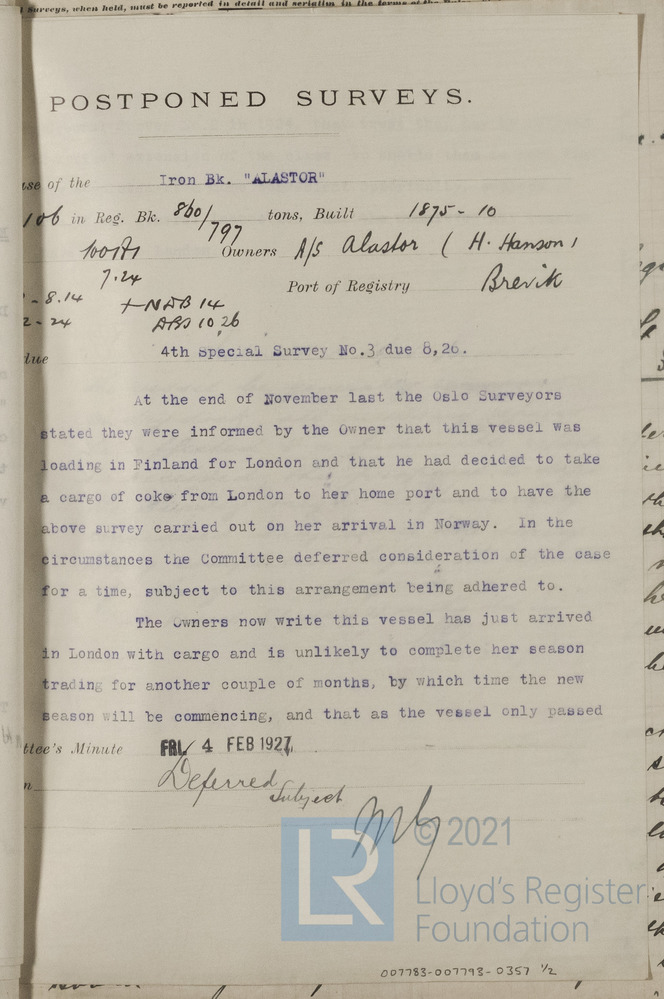 Surveys, when held, must be reported in detail and seriatim in the terms of the
POSTPONED SURVEYS.
se of the Iron Bk. "ALASTOR"
106 in Reg. Bk. 860/797 tons, Built 1875 - 10
100A1 Owners A/S Alastor ( H. Hanson )
7.24 Port of Registry Brevik
- 8.14 + NDB 14
2 - 24 ABS 10,26
due 4th Special Survey No.3 due 8,26.
At the end of November last the Oslo Surveyors
stated they were informed by the Owner that this vessel was
loading in Finland for London and that he had decided to take
a cargo of coke from London to her home port and to have the
above survey carried out on her arrival in Norway. In the
circumstances the Committee deferred consideration of the case
for a time, subject to this arrangement being adhered to.
The Owners now write this vessel has just arrived
in London with cargo and is unlikely to complete her season
trading for another couple of months, by which time the new
season will be commencing, and that as the vessel only passed
ttee's Minute FRI. 4 FEB 1927
n Deferred Subject
LR © 2021
Lloyd's Register
Foundation
007783-007798-0357 1/2